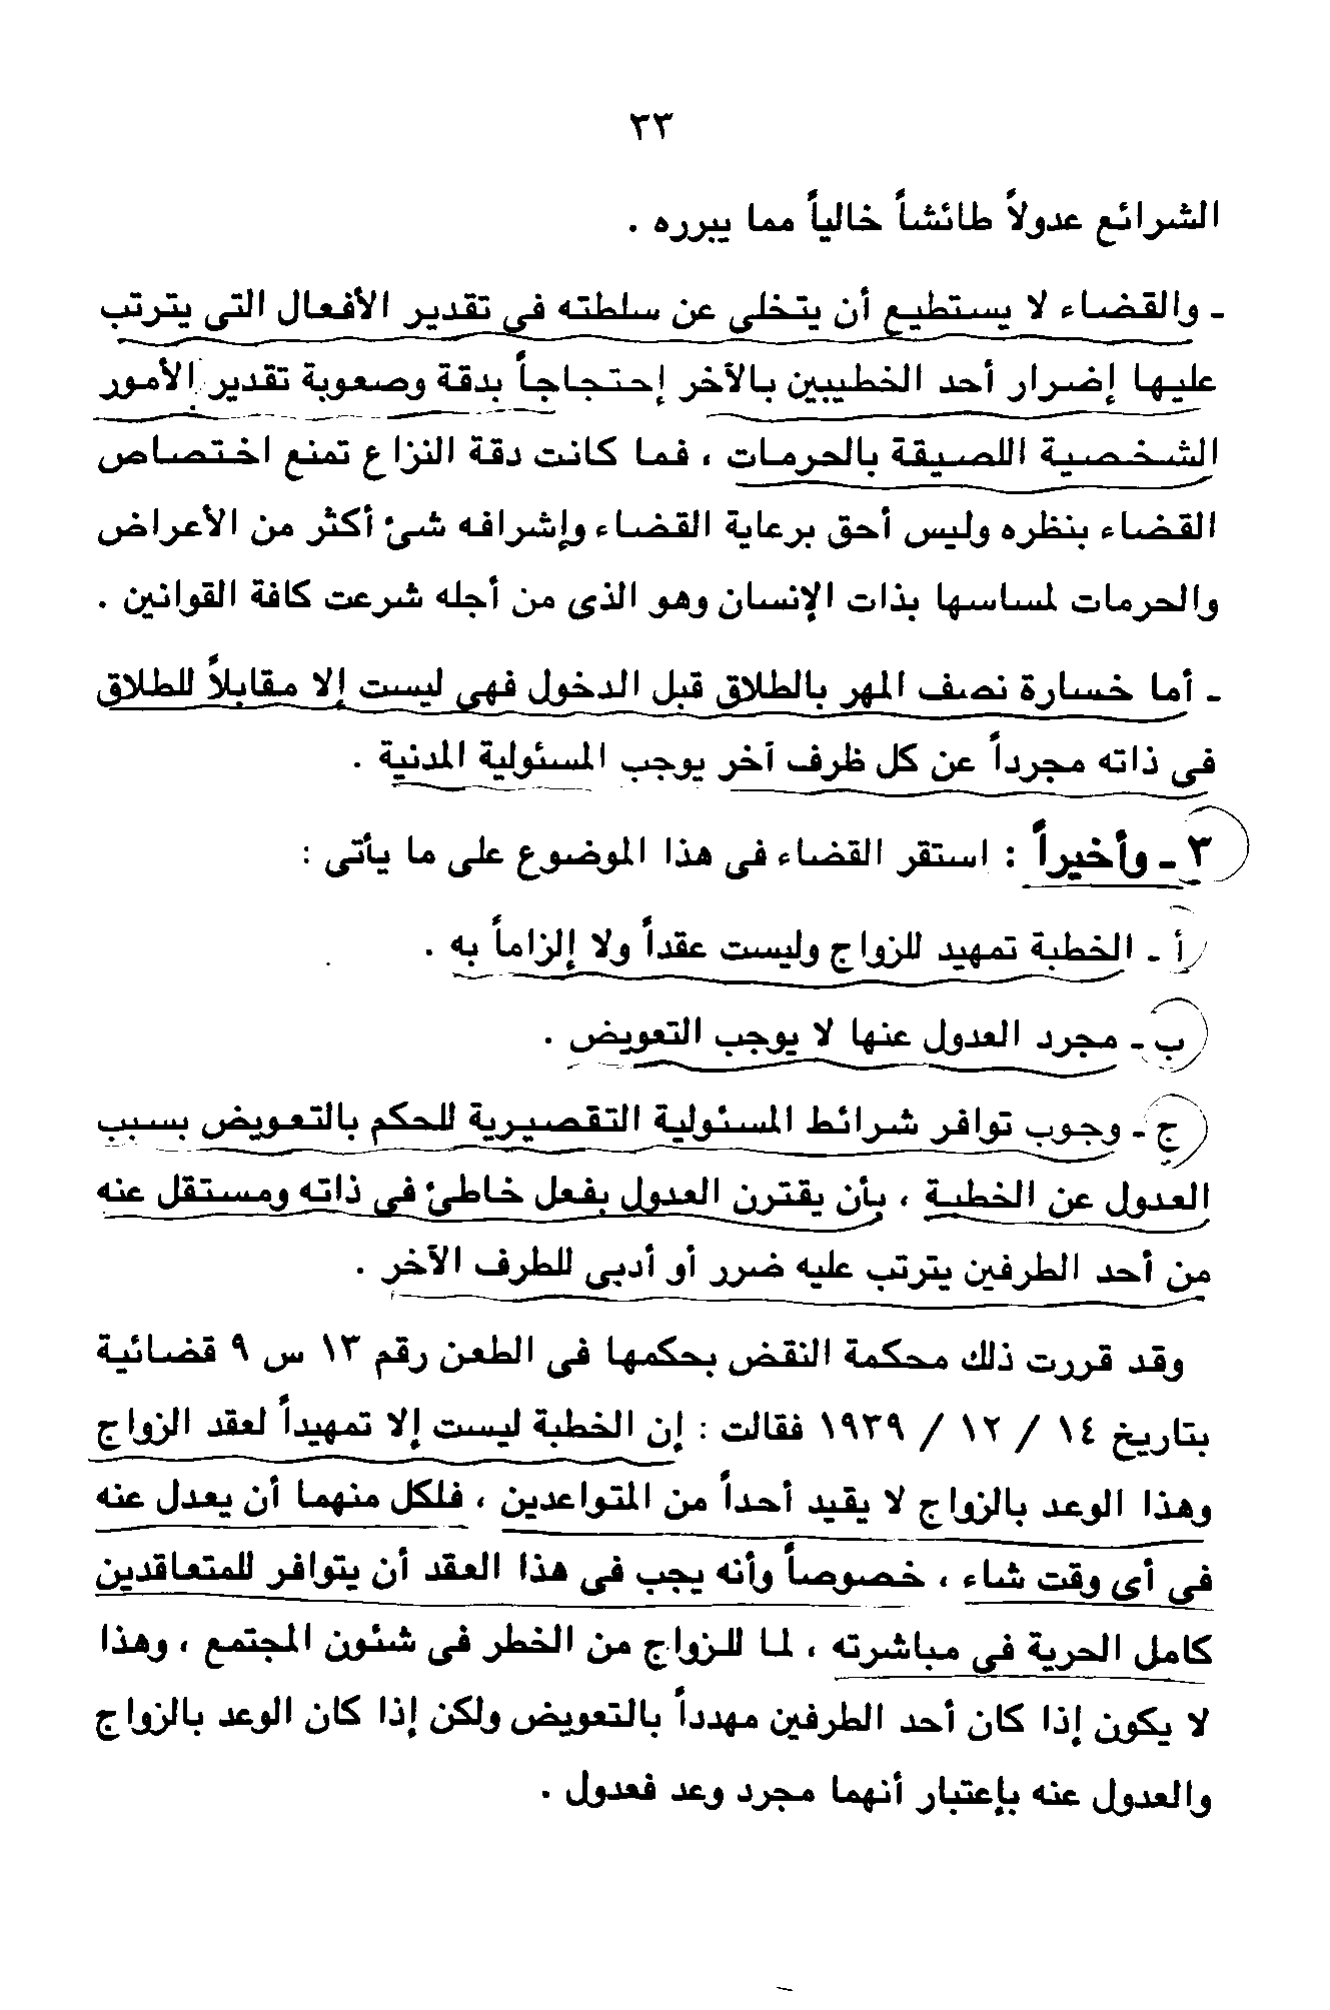 ٣٣
الشرائع عدولاً طائشاً خالياً مما يبرره .
- والقضاء لا يستطيع أن يتخلى عن سلطته فى تقدير الأفعال التى يترتب
عليها إضرار أحد الخطيبين بالآخر إحتجاجاً بدقة وصعوبة تقدير الأمور
الشخصية اللصيقة بالحرمات ، فما كانت دقة النزاع تمنع اختصاص
القضاء بنظره وليس أحق برعاية القضاء وإشرافه شئ أكثر من الأعراض
والحرمات لمساسها بذات الإنسان وهو الذى من أجله شرعت كافة القوانين .
- أما خسارة نصف المهر بالطلاق قبل الدخول فهى ليست إلا مقابلاً للطلاق
فى ذاته مجرداً عن كل ظرف آخر يوجب المسئولية المدنية .
٣ - وأخيراً : استقر القضاء فى هذا الموضوع على ما يأتى :
أ - الخطبة تمهيد للزواج وليست عقداً ولا إلزاماً به .
ب - مجرد العدول عنها لا يوجب التعويض .
ج - وجوب توافر شرائط المسئولية التقصيرية للحكم بالتعويض بسبب
العدول عن الخطبة ، بأن يقترن العدول بفعل خاطئ فى ذاته ومستقل عنه
من أحد الطرفين يترتب عليه ضرر أو أدبى للطرف الآخر .
وقد قررت ذلك محكمة النقض بحكمها فى الطعن رقم ١٣ س ٩ قضائية
بتاريخ ١٤ / ١٢ / ١٩٣٩ فقالت : إن الخطبة ليست إلا تمهيداً لعقد الزواج
وهذا الوعد بالزواج لا يقيد أحداً من المتواعدين ، فلكل منهما أن يعدل عنه
فى أى وقت شاء ، خصوصاً وأنه يجب فى هذا العقد أن يتوافر للمتعاقدين
كامل الحرية فى مباشرته ، لما للزواج من الخطر فى شئون المجتمع ، وهذا
لا يكون إذا كان أحد الطرفين مهدداً بالتعويض ولكن إذا كان الوعد بالزواج
والعدول عنه بإعتبار أنهما مجرد وعد فعدول .